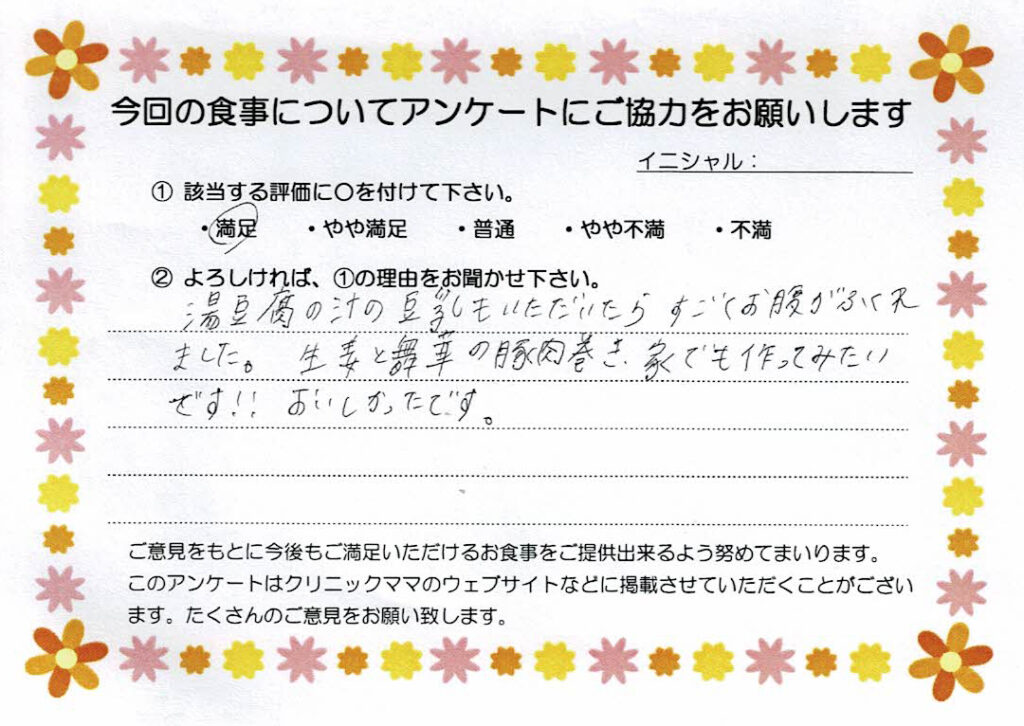 今回の食事についてアンケートにご協力をお願いします
イニシャル：
① 該当する評価に○を付けて下さい。
・満足 ・やや満足 ・普通 ・やや不満 ・不満
② よろしければ、①の理由をお聞かせ下さい。
湯豆腐の汁の豆乳もいただいたら すごくお腹がふくれ
ました。 生姜と舞茸の豚肉巻き、家でも作ってみたい
ぜす!! おいしかったです。
ご意見をもとに今後もご満足いただけるお食事をご提供出来るよう努めてまいります。
このアンケートはクリニックママのウェブサイトなどに掲載させていただくことがござい
ます。たくさんのご意見をお願い致します。